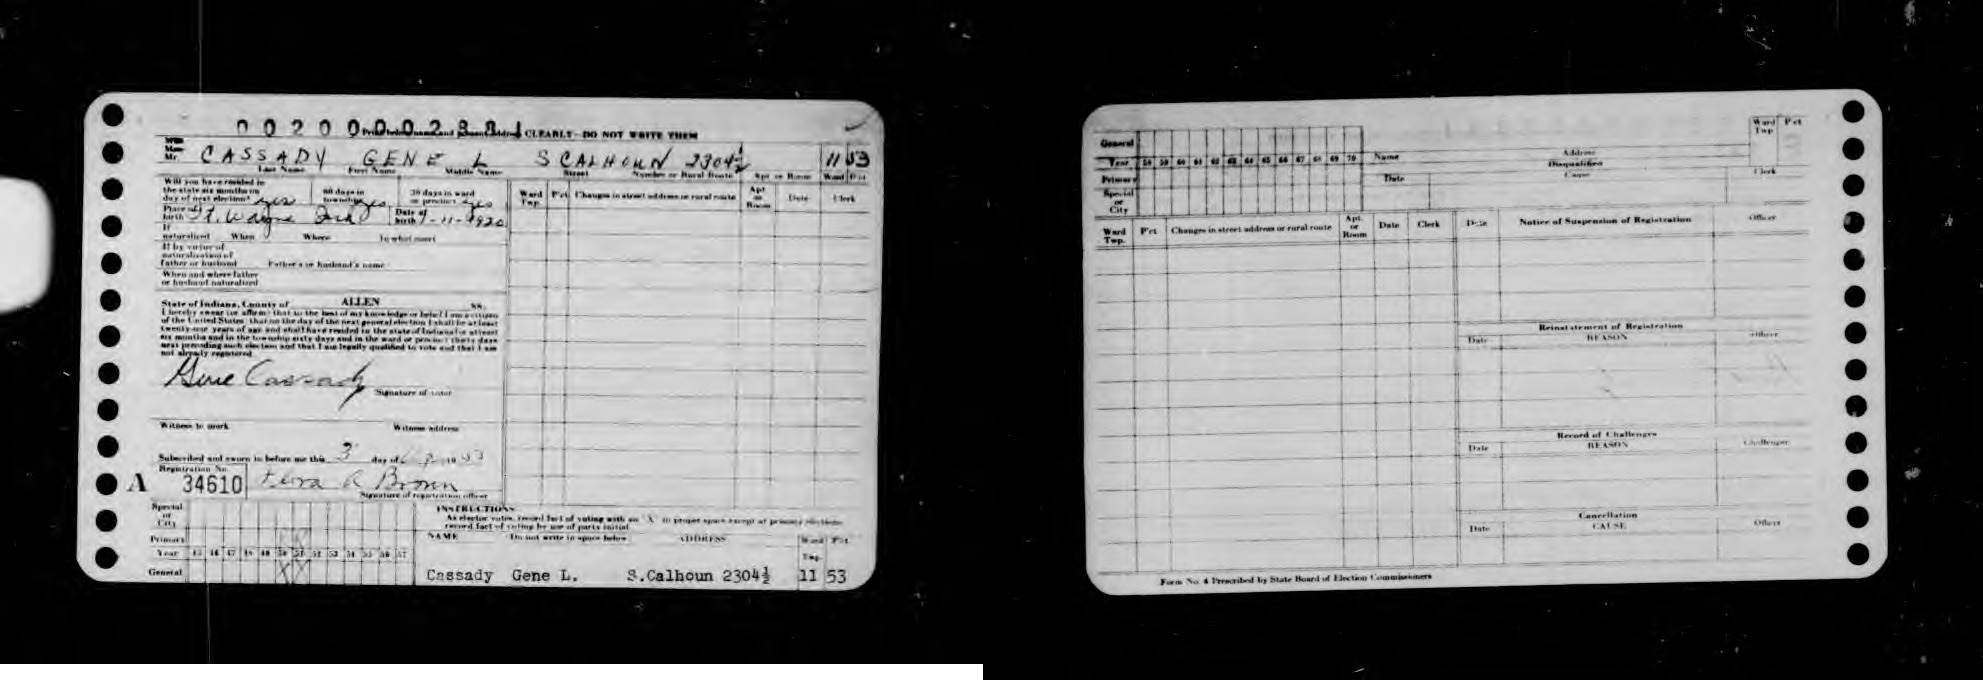 CLEARLY—DO NOT WRITE THEM
Mr. CASSADY GENE L S CALHOUN 2304½ 11 53
Last Name First Name Middle Name Street Number or Rural Route Apt or Room Ward Pct
Will you have resided in
the state six months on
day of next election? yes
60 days in
township yes
30 days in ward
or precinct yes
Place of
birth Ft. Wayne Ind
Date of
birth 1-11-1920
If
naturalized When Where In what court
If by virtue of
naturalization of
father or husband Father's or husband's name
When and where father
or husband naturalized
Ward
Twp. Pct Changes in street address or rural route Apt.
or
Room Date Clerk
State of Indiana, County of ALLEN ss.
I hereby swear (or affirm) that to the best of my knowledge or belief I am a citizen
of the United States; that on the day of the next general election I shall be at least
twenty-one years of age and shall have resided in the state of Indiana for at least
six months and in the township sixty days and in the ward or precinct thirty days
next preceding such election and that I am legally qualified to vote and that I am
not already registered
Gene Cassady
Signature of voter
Witness to mark Witness address
Subscribed and sworn to before me this 3 day of 19
Registration No.
A 34610 Brown
Signature of registration officer
Special
or
City
Primary
Year 45 46 47 48 49 50 51 52 53 54 55 56 57
General XX
INSTRUCTIONS
As elector votes, record fact of voting with an "X" in proper space except at primary elections
record fact of voting by use of party initial
NAME Do not write in space below ADDRESS Ward Pct.
Twp.
Cassady Gene L. S.Calhoun 2304½ 11 53
General
Year 58 59 60 61 62 63 64 65 66 67 68 69 70
Primary
Special
or
City
Name Address
Disqualified
Date Cause Clerk
Ward
Twp Pct
Ward
Twp. Pct Changes in street address or rural route Apt.
or
Room Date Clerk
Date Notice of Suspension of Registration Officer
Reinstatement of Registration
Date REASON Officer
Record of Challenges
Date REASON Challenger
Cancellation
Date CAUSE Officer
Form No. 4 Prescribed by State Board of Election Commissioners